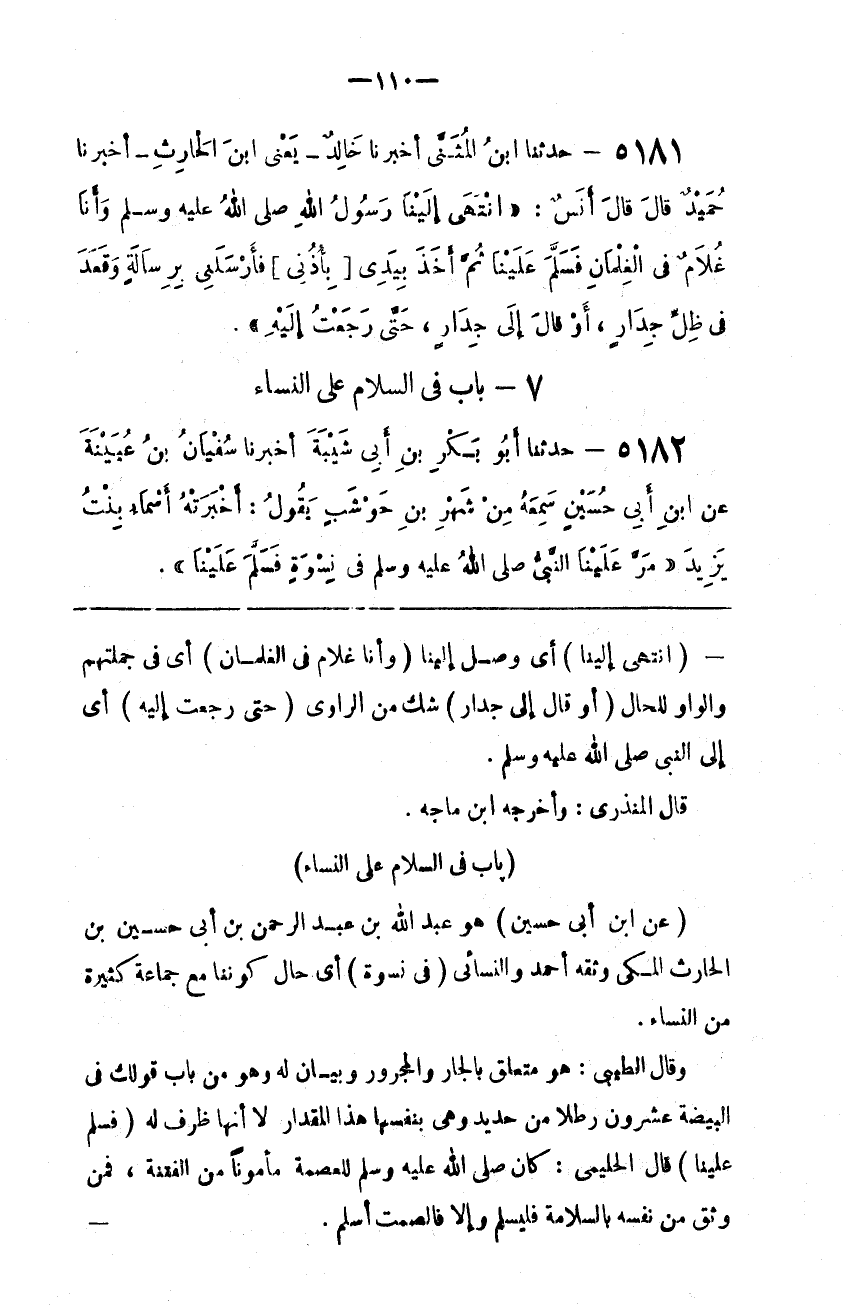 —١١٠—
٥١٨١ – حدثنا ابنُ المُثَنَّى أخبرنا خَالِدٌ – يَعْنِى ابنَ الحَارِثِ – أخبرنا
حُمَيْدٌ قالَ قالَ أَنَسٌ : « انْتَهَى إلَيْنَا رَسُولُ اللهِ صلى اللهُ عليه وسلم وَأَنَا
غُلَامٌ فى الْغِلْمَانِ فَسَلَّمَ عَلَيْنَا ثُمَّ أَخَذَ بِيَدِى [ بِأُذُنِى ] فأَرْسَلَنِى بِرِسالَةٍ وَقَعَدَ
فى ظِلِّ جِدَارٍ ، أَوْ قالَ إلَى جِدَارٍ ، حَتَّى رَجَعْتُ إلَيْهِ » .
٧ – باب فى السلام على النساء
٥١٨٢ – حدثنا أَبُو بَكْرِ بنِ أَبِى شَيْبَةَ أخبرنا سُفْيَانُ بنُ عُيَيْنَةَ
عن ابنِ أَبِى حُسَيْنٍ سَمِعَهُ مِنْ شَهْرِ بنِ حَوْشَبٍ يَقُولُ : أَخْبَرَتْهُ أَسْمَاءِ بِنْتُ
يَزِيدَ « مَرَّ عَلَيْنَا النَّبِىُّ صلى اللهُ عليه وسلم فى نِسْوَةٍ فَسَلَّمَ عَلَيْنَا » .
— ( انتهى إلينا ) أى وصل إلينا ( وأنا غلام فى الغلمان ) أى فى جملتهم
والواو للحال ( أو قال إلى جدار ) شك من الراوى ( حتى رجعت إليه ) أى
إلى النبى صلى الله عليه وسلم .
قال المنذرى : وأخرجه ابن ماجه .
(باب فى السلام على النساء)
( عن ابن أبى حسين ) هو عبد الله بن عبد الرحمن بن أبى حسين بن
الحارث المكى وثقه أحمد والنسائى ( فى نسوة ) أى حال كوننا مع جماعة كثيرة
من النساء .
وقال الطيبى : هو متعلق بالجار والمجرور وبيان له وهو من باب قولك فى
البيضة عشرون رطلا من حديد وهى بنفسها هذا المقدار لا أنها ظرف له ( فسلم
علينا ) قال الحليمى : كان صلى الله عليه وسلم للعصمة مأموناً من الفتنة ، فمن
وثق من نفسه بالسلامة فليسلم وإلا فالصمت أسلم . —